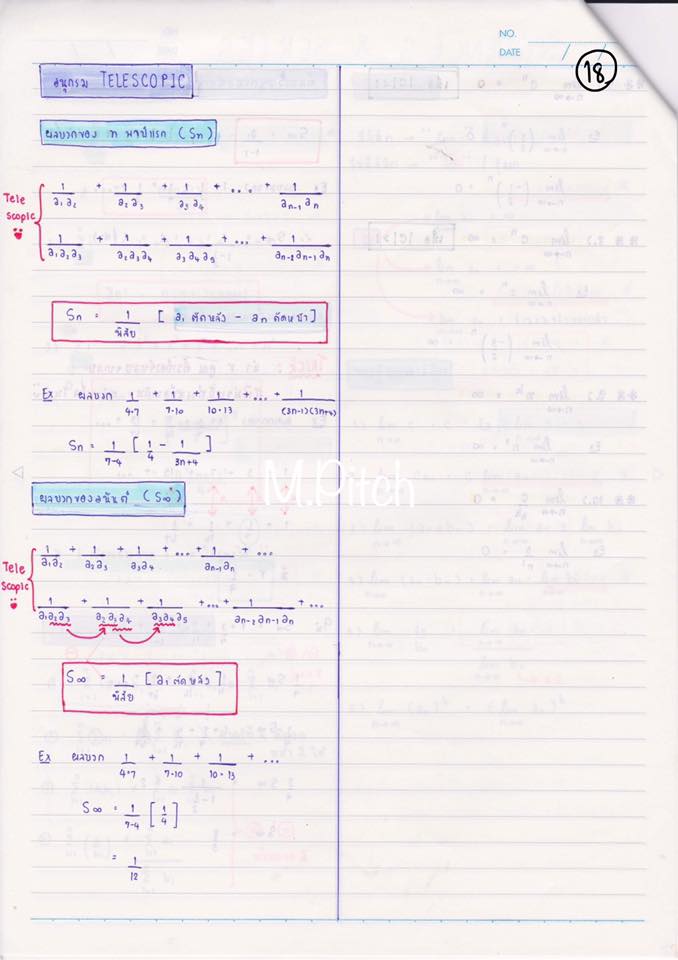 NO.
DATE / /
18
อนุกรม TELESCOPIC
ผลบวกของ n พจน์แรก (Sn)
Tele scopic
1/a₁a₂ + 1/a₂a₃ + 1/a₃a₄ + ... + 1/aₙ₋₁aₙ
1/a₁a₂a₃ + 1/a₂a₃a₄ + 1/a₃a₄a₅ + ... + 1/aₙ₋₂aₙ₋₁aₙ
Sn = 1/พิสัย [a₁ ตัดหลัง - aₙ ตัดหน้า]
Ex ผลบวก 1/4·7 + 1/7·10 + 1/10·13 + ... + 1/(3n-1)(3n+4)
Sn = 1/7-4 [1/4 - 1/3n+4]
M.Pitch
ผลบวกของอนันต์ (S∞)
Tele scopic
1/a₁a₂ + 1/a₂a₃ + 1/a₃a₄ + ... + 1/aₙ₋₁aₙ + ...
1/a₁a₂a₃ + 1/a₂a₃a₄ + 1/a₃a₄a₅ + ... + 1/aₙ₋₂aₙ₋₁aₙ + ...
S∞ = 1/พิสัย [a₁ ตัดหลัง]
Ex ผลบวก 1/4·7 + 1/7·10 + 1/10·13 + ...
S∞ = 1/7-4 [1/4]
= 1/12